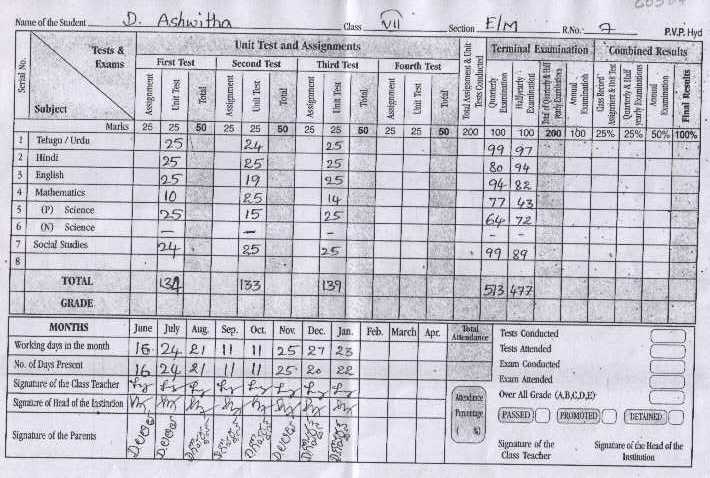 Name of the Student D. Ashwitha Class VII Section E/M R.No. 7 P.V.P. Hyd
Serial No. Tests & Exams Subject Unit Test and Assignments Total Assignment & Unit Tests Conducted Terminal Examination Combined Results
First Test Second Test Third Test Fourth Test
Assignment Unit Test Total Assignment Unit Test Total Assignment Unit Test Total Assignment Unit Test Total Quarterly Examination Halfyearly Examination Total of Quarterly & Half yearly Examinations Annual Examination Class Record Assignment & Unit Test Quarterly & Half yearly Examinations Annual Examination Final Results
Marks 25 25 50 25 25 50 25 25 50 25 25 50 200 100 100 200 100 25% 25% 50% 100%
1 Telugu / Urdu 25 24 25 99 97
2 Hindi 25 25 25 80 94
3 English 25 19 25 94 82
4 Mathematics 10 25 14 77 43
5 (P) Science 25 15 25 64 72
6 (N) Science – – – – –
7 Social Studies 24 25 25 99 89
8
TOTAL 134 133 139 513 477
GRADE
MONTHS June July Aug. Sep. Oct. Nov. Dec. Jan. Feb. March Apr. Total Attendance
Working days in the month 16 24 21 11 11 25 27 23
No. of Days Present 16 24 21 11 11 25 20 22
Signature of the Class Teacher
Signature of Head of the Institution
Signature of the Parents
Attendance Percentage ( %)
Tests Conducted
Tests Attended
Exam Conducted
Exam Attended
Over All Grade (A,B,C,D,E)
PASSED PROMOTED DETAINED
Signature of the Class Teacher
Signature of the Head of the Institution